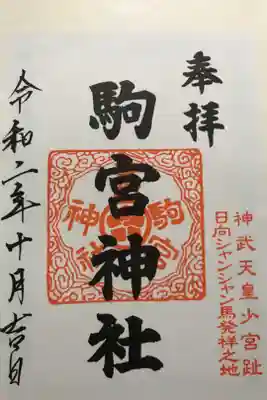 奉拝
神武天皇少宮趾
日向シャンシャン馬発祥之地
駒宮神社
駒宮神社
令和二年十月吉日